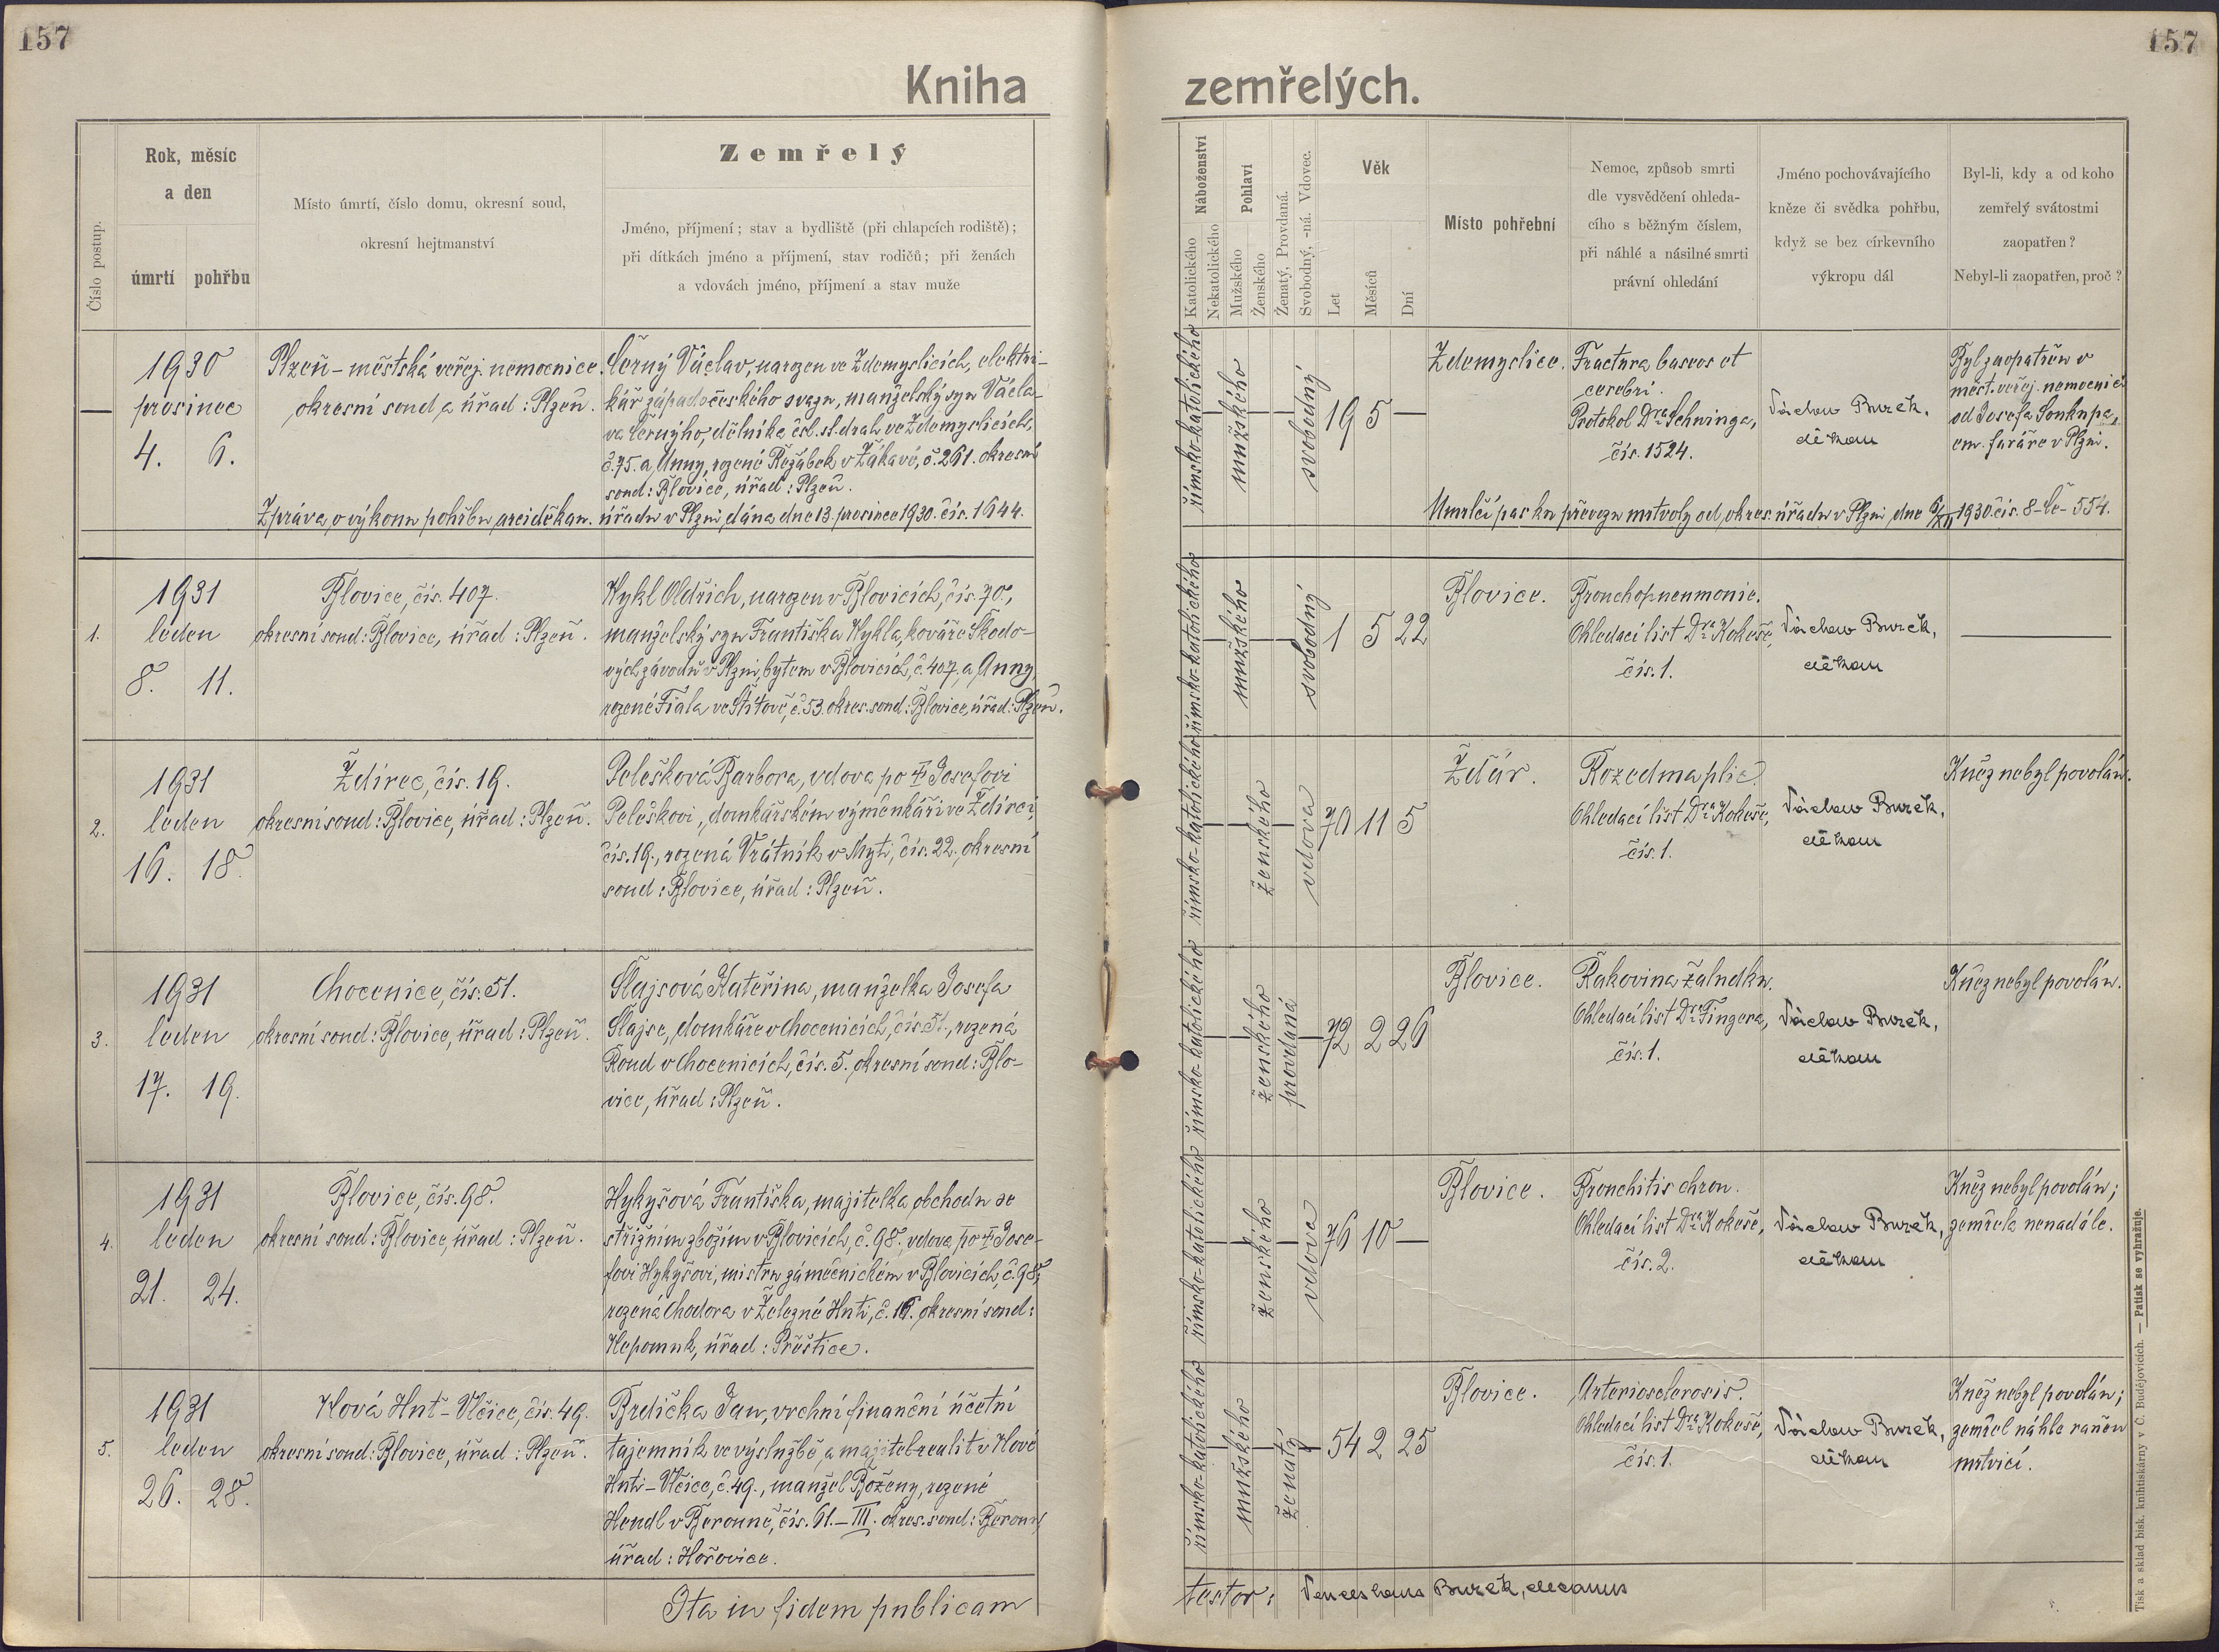 157
157
Kniha zemřelých.
Číslo postup.
Rok, měsíc
a den
úmrtí
pohřbu
Místo úmrtí, číslo domu, okresní soud,
okresní hejtmanství
Zemřelý
Jméno, příjmení; stav a bydliště (při chlapcích rodiště);
při dítkách jméno a příjmení, stav rodičů; při ženách
a vdovách jméno, příjmení a stav muže
Náboženství
Katolického
Nekatolického
Pohlaví
Mužského
Ženského
Ženatý, Provdaná.
Svobodný, -ná. Vdovec.
Věk
Let
Měsíců
Dní
Místo pohřební
Nemoc, způsob smrti
dle vysvědčení ohleda-
cího s běžným číslem,
při náhlé a násilné smrti
právní ohledání
Jméno pochovávajícího
kněze či svědka pohřbu,
když se bez církevního
výkropu dál
Byl-li, kdy a od koho
zemřelý svátostmi
zaopatřen?
Nebyl-li zaopatřen, proč?
—
1930
prosinec
4. 6.
Plzeň - městská veřej. nemocnice.
okresní soud a úřad: Plzeň.
Černý Václav, narozen ve Zdemyslicích, elektri-
kář západočeského svazu, manželský syn Václa-
va Černýho, dělníka čsl. st. drah ve Zdemyslicích,
č. 75. a Anny, rozené Režábek v Žákavé, č. 261. okresní
soud: Blovice, úřad: Plzeň.
Zpráva o výkonu pohřbu arciděkan. úřadu v Plzni dána dne 13. prosince 1930. čís. 1644.
římsko-katolického
mužského
svobodný
19 5 —
Zdemyslice.
Fractura baseos et
cerebri.
Protokol Dra Schwinga,
čís. 1524.
Václav Burek,
děkan
Byl zaopatřen v
měst. veřej. nemocnici
od Josefa Soukupa,
em. faráře v Plzni.
Umrlčí pas ku převozu mrtvoly od okres. úřadu v Plzni, dne 6/XII 1930. čís. 8-Če-554.
1.
1931
leden
8. 11.
Blovice, čís. 407.
okresní soud: Blovice, úřad: Plzeň.
Nykl Oldřich, narozen v Blovicích, čís. 70.,
manželský syn Františka Nykla, kováře Škodo-
vých závodů v Plzni, bytem v Blovicích, č. 407. a Anny
rozené Fiala ve Štítově, č. 53. okres. soud: Blovice, úřad: Plzeň.
římsko-katolického
mužského
svobodný
1 5 22
Blovice.
Bronchopneumonie.
Ohledací list Dra Kokeše,
čís. 1.
Václav Burek,
děkan
—
2.
1931
leden
16. 18.
Ždírec, čís. 19.
okresní soud: Blovice, úřad: Plzeň.
Pelešková Barbora, vdova po † Josefovi
Peleškovi, domkářském výměnkáři ve Ždírci,
čís. 19., rozená Vrátník v Mýti, čís. 22. okresní
soud: Blovice, úřad: Plzeň.
římsko-katolického
ženského
vdova
70 11 5
Žďár.
Rozedma plic.
Ohledací list Dra Kokeše,
čís. 1.
Václav Burek,
děkan
Kněz nebyl povolán.
3.
1931
leden
17. 19.
Chocenice, čís. 51.
okresní soud: Blovice, úřad: Plzeň.
Šlajsová Kateřina, manželka Josefa
Šlajse, domkáře v Chocenicích, čís. 51., rozená
Roud v Chocenicích, čís. 5. okresní soud: Blo-
vice, úřad: Plzeň.
římsko-katolického
ženského
provdaná
72 2 26
Blovice.
Rakovina žaludku.
Ohledací list Dra Fingera,
čís. 1.
Václav Burek,
děkan
Kněz nebyl povolán.
4.
1931
leden
21. 24.
Blovice, čís. 98.
okresní soud: Blovice, úřad: Plzeň.
Hykyšová Františka, majitelka obchodu se
střižním zbožím v Blovicích, č. 98., vdova po † Jose-
fovi Hykyšovi, mistru zámečnickém v Blovicích, č. 98.,
rozená Chodora v Železné Huti, č. 16. okresní soud:
Nepomuk, úřad: Přeštice.
římsko-katolického
ženského
vdova
76 10 —
Blovice.
Bronchitis chron.
Ohledací list Dra Kokeše,
čís. 2.
Václav Burek,
děkan
Kněz nebyl povolán;
zemřela nenadále.
5.
1931
leden
26. 28.
Nová Huť - Vlčice, čís. 49.
okresní soud: Blovice, úřad: Plzeň.
Brdička Jan, vrchní finanční účetní
tajemník ve výslužbě, a majitel realit v Nové
Huti - Vlčice, č. 49., manžel Boženy, rozené
Hendl v Berouně, čís. 61. - III. okres. soud: Beroun,
úřad: Hořovice.
římsko-katolického
mužského
ženatý
54 2 25
Blovice.
Arteriosclerosis.
Ohledací list Dra Kokeše,
čís. 1.
Václav Burek,
děkan
Kněz nebyl povolán;
zemřel náhle raněn
mrtvicí.
Ita in fidem publicam
testor: Venceslaus Burek, decanus
Tisk a sklad bisk. knihtiskárny v Č. Budějovicích. — Patisk se vyhražuje.